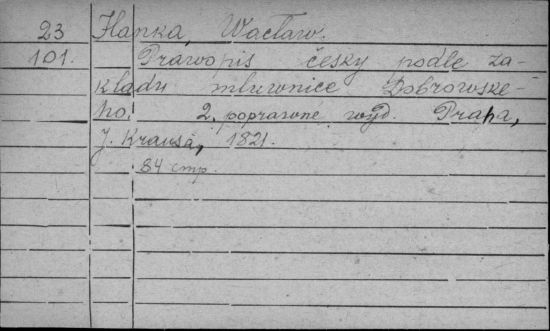 23 Hanka, Wacław.
101. Prawopis česky podle za-
kladu mluwnice Dobrowske-
ho. 2. poprawne wyd. Praha,
J. Krausa, 1821.
84 стр.